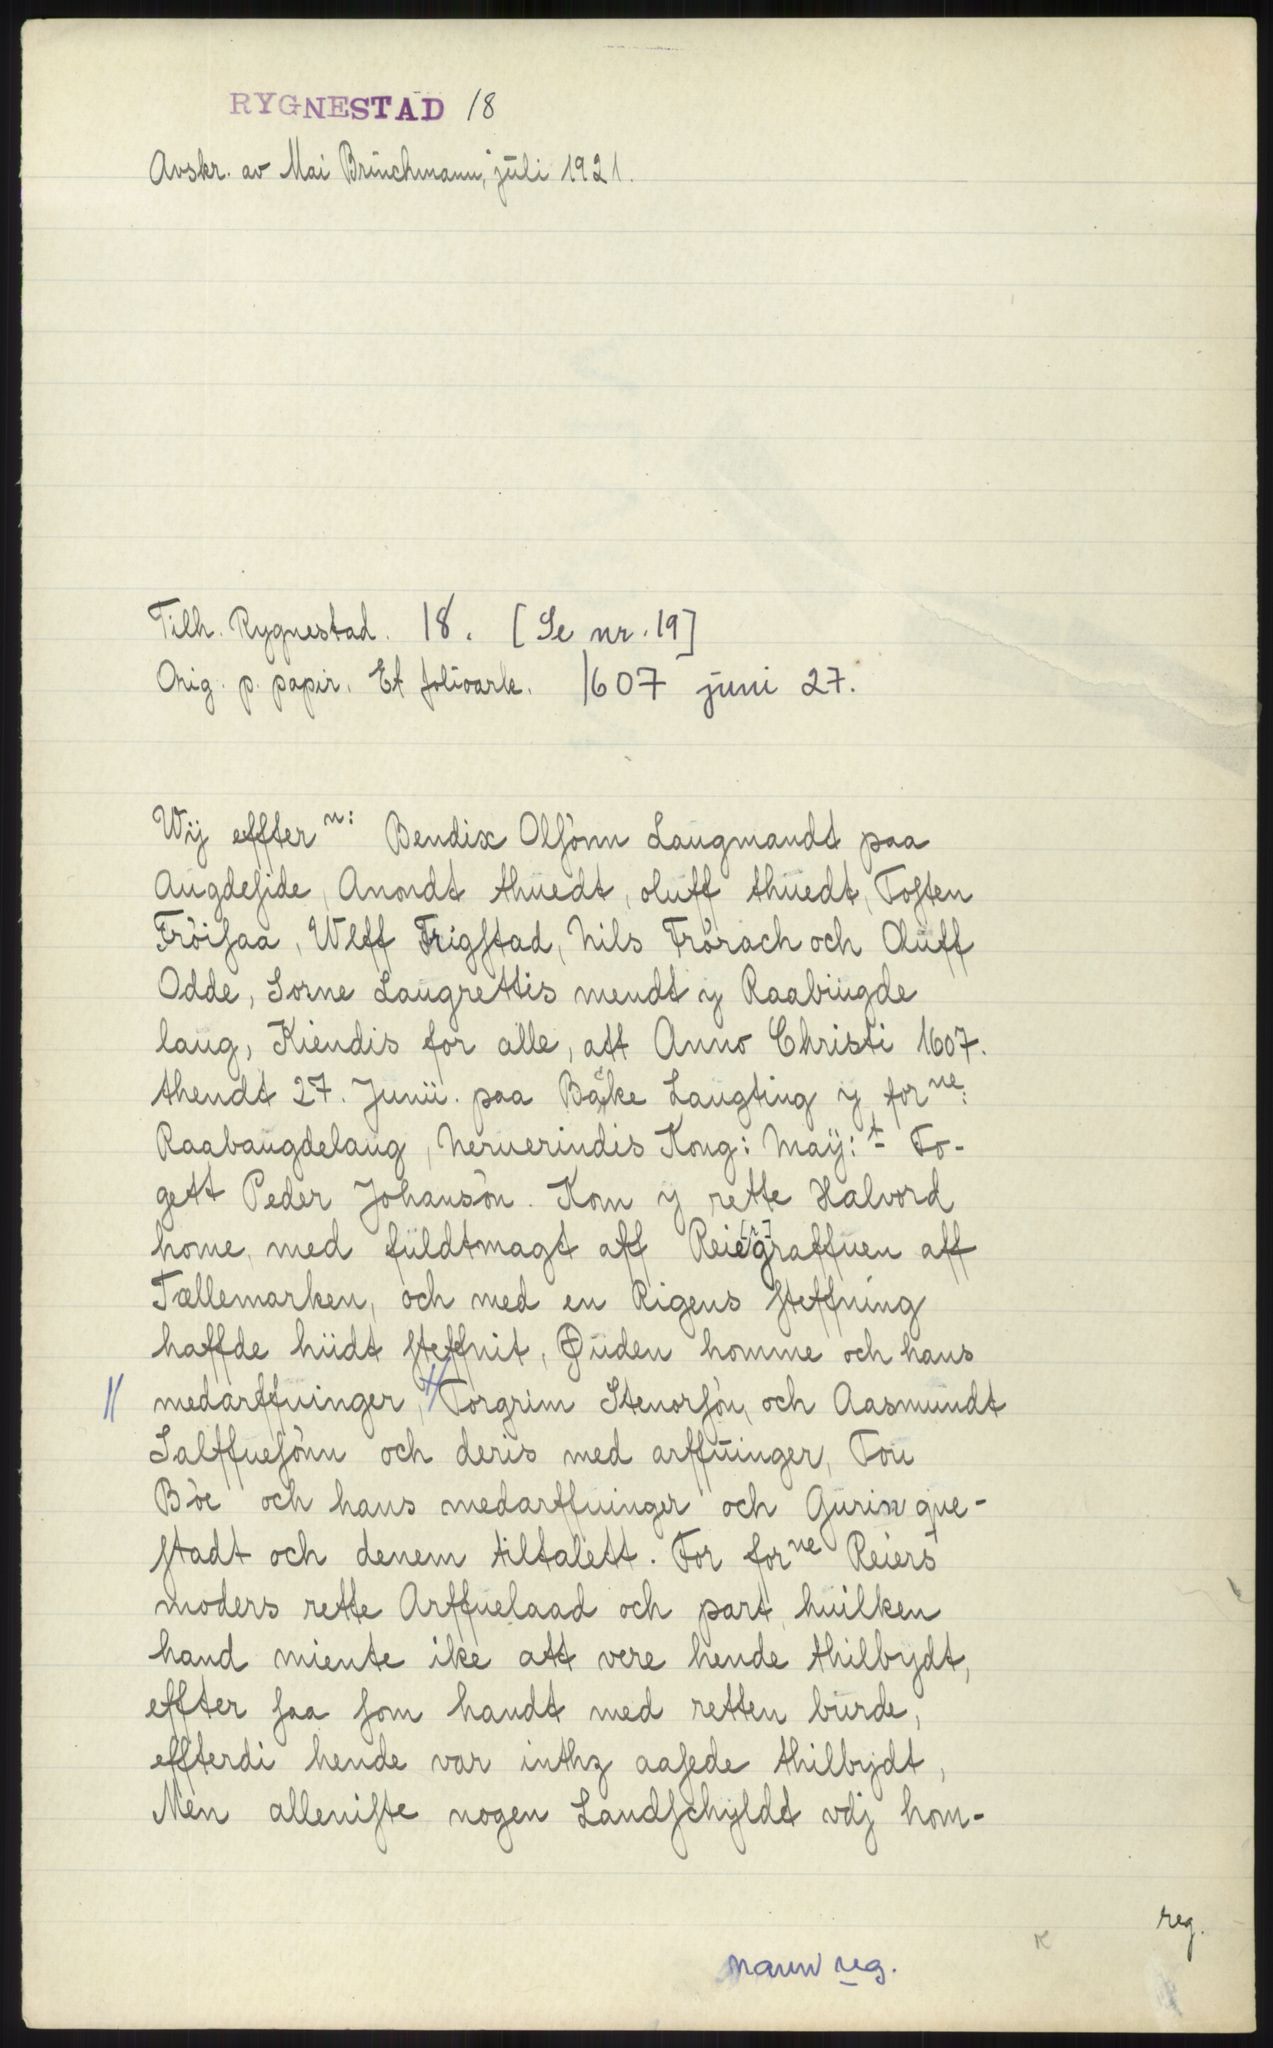 RYGNESTAD 18
Avskr. av Mai Brünchmann, juli 1921.
Tilh. Rygnestad. 18. [Se nr. 19]
Orig. p. papir. Et folioark. 1607 juni 27.
Wij effter n: Bendix Olsönn Laugmandt paa
Augdeside, Anondt thuedt, oluff thuedt, Tosten
Fröisaa, Wlff Frigstad, Nils Frörach och Oluff
Odde, Sorne Laugrettis mendt y Raabiugde
laug, Kiendis for alle, att Anno Christi 1607.
thendt 27. Junii. paa Båke Laugting y for ne:
Raabaugdelaug, Neruerindis Kong: May: t Fo-
gett Peder Johansön. Kom y rette Halvord
home, med fuldtmagt aff Reie[r]graffuen aff
Tællemarken, och med en Rigens steffning
haffde hüdt steffnit, Øuden homme och hans
// medarffuinger, // Torgrim Stenorsön, och Aasmundt
Salffuesönn och deris med arffuinger, Tou
Böe och hans medarffuinger och Gurix que-
stadt och denem tiltalett. For for ne Reiers
moders rette Arffuelaad och part, huilken
hand miente ike att vere hende thilbydt,
effter saa som handt med retten burde,
effterdi hende var inthz aasede thilbydt,
Men alleniste nogen Landschyldt vdj hom-
reg.
navn reg.